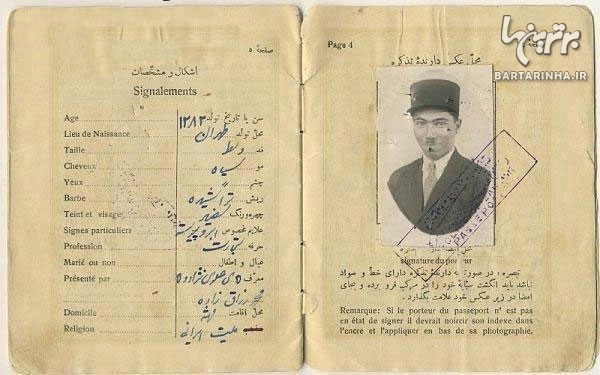 صفحهٔ ۵
اشکال و مشخصات
Signalements
Age سن یا تاریخ تولد ۱۲۸۲
Lieu de Naissance محل تولد طهران
Taille قد وسط
Cheveux مو سیاه
Yeux چشم
Barbe ریش تراشیده
Teint et visage چهره و رنگ
Signes particuliers علایم مخصوص ابرو پیوسته
Profession حرفه تجارت
Marié ou non عیال و اطفال
Présenté par معرف
Domicile محل اقامت
Religion مذهب ملیت ایرانی
Page 4
محل عکس دارندهٔ تذکره
برترینها
BARTARINHA.IR
PASSEPORT
signature du porteur
تبصره، در صورتیکه دارندهٔ تذکره دارای خط و سواد
نباشد باید انگشت سبابهٔ خود را در مرکب فرو برده و بجای
امضا در زیر عکس خود علامت بگذارد.
Remarque: Si le porteur du passeport n' est pas
en état de signer il devrait noircir son indexe dans
l'encre et l'appliquer en bas de sa photographie.